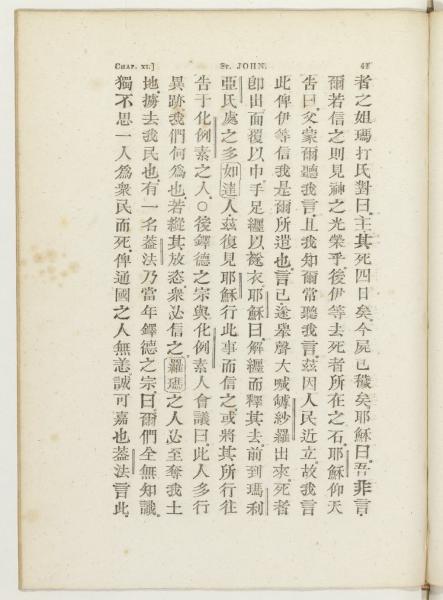 CHAP. XI.]
ST. JOHN.
41
者之姐瑪打氏對曰主其死四日矣今屍已穢矣耶穌曰吾非言
爾若信之則見神之光榮乎後伊等去死者所在之石耶穌仰天
告曰父蒙爾聽我言且我知爾常聽我言茲因人民近立故我言
此俾伊等信我是爾所遣也言已遂舉聲大喊嘑紗羅出來死者
卽出面覆以巾手足纏以 衣耶穌曰解纏而釋其去前到瑪利
亞氏處之多如達人茲復見耶穌行此事而信之或將其所行往
告于化例素之人○後鐸德之宗與化例素人會議曰此人多行
異跡我們何爲也若縱其放恣衆必信之羅瑪之人必至奪我土
地擄去我民也有一名蓋法乃當年鐸德之宗曰爾們全無知識
獨不思一人爲衆民而死俾通國之人無恙誠可嘉也蓋法言此